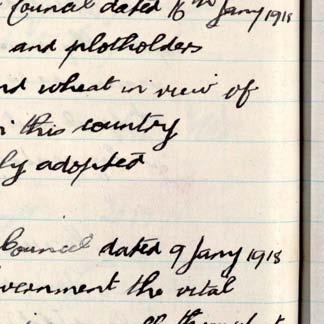 Council dated 16th Jany 1918
and plotholders
nd wheat in view of
this country
ly adopted
Council dated 9 Jany 1918
vernment the vital